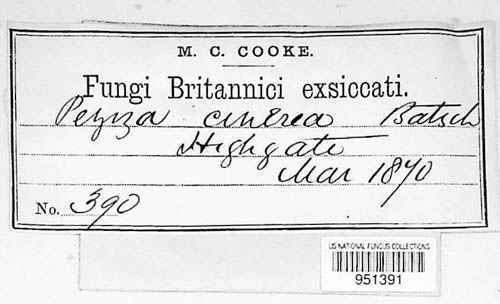 M. C. COOKE.
Fungi Britannici exsiccati.
Peziza cinerea Batsch
Highgate
Mar 1870
No. 390
US NATIONAL FUNGUS COLLECTIONS
951391